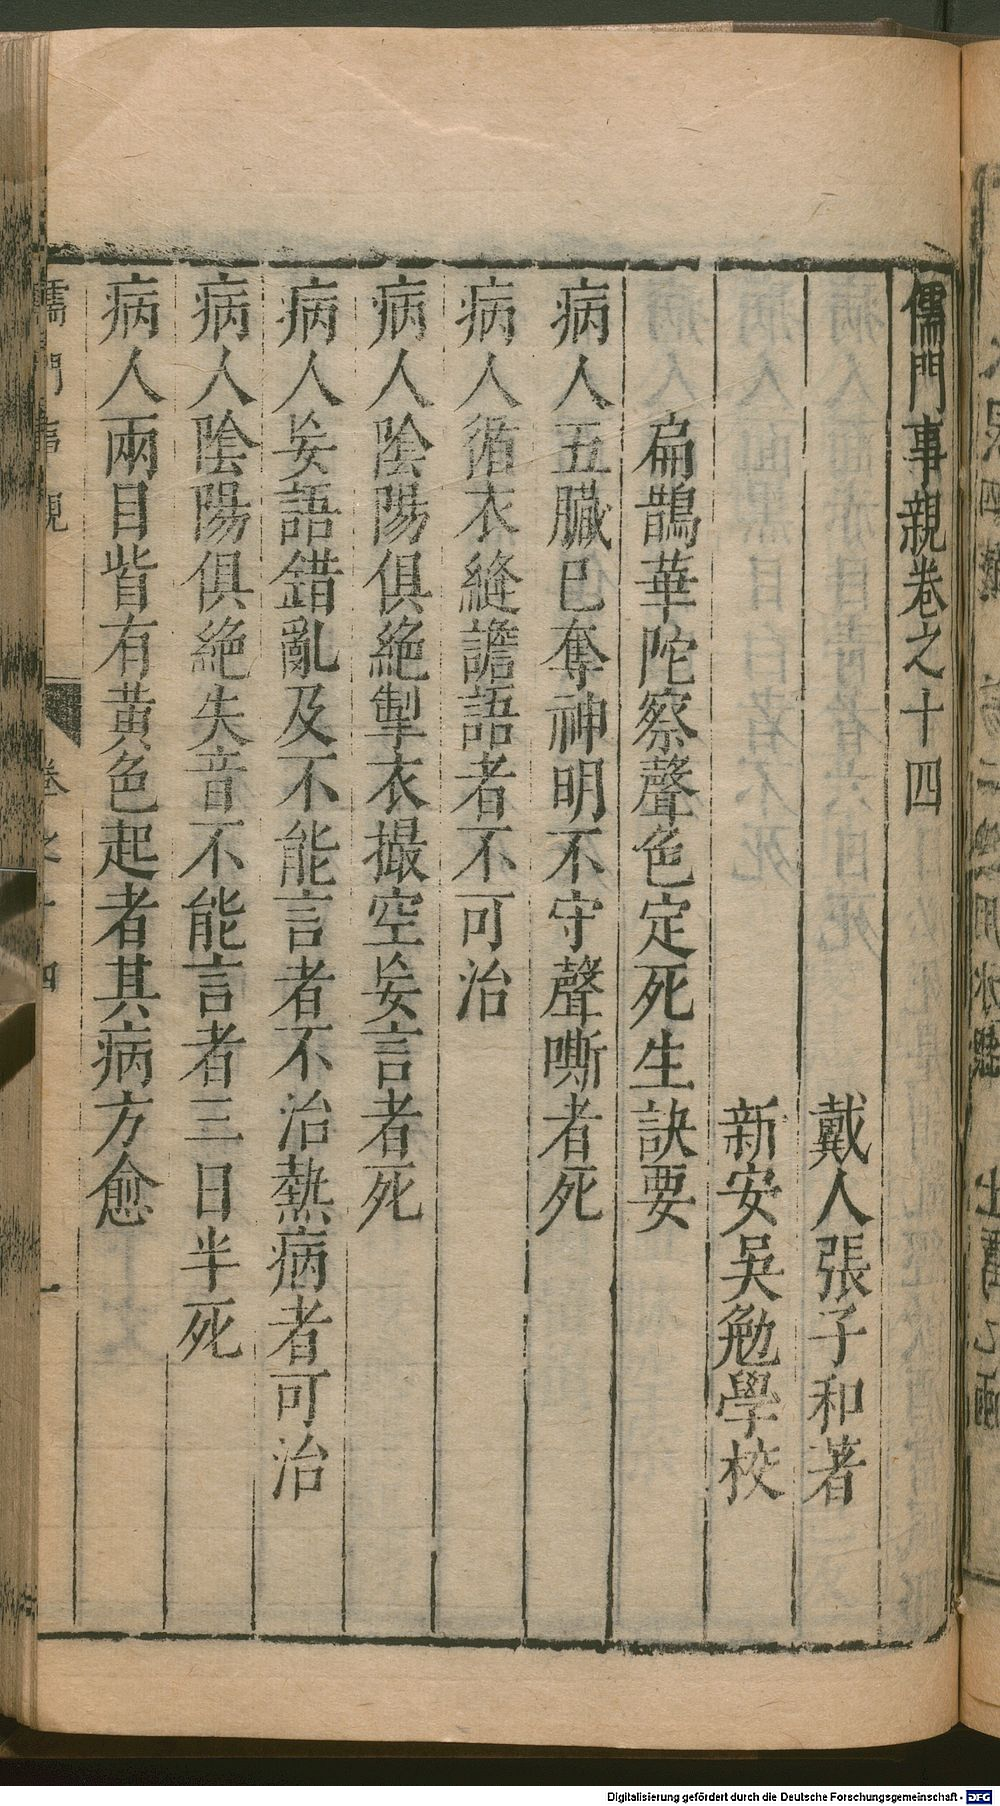 儒門事親卷之十四
戴人張子和著
新安吳勉學校
扁鵲華陀察聲色定死生訣要
病人五臟已奪神明不守聲嘶者死
病人循衣縫譫語者不可治
病人陰陽俱絕掣衣撮空妄言者死
病人妄語錯亂及不能言者不治熱病者可治
病人陰陽俱絕失音不能言者三日半死
病人兩目眥有黃色起者其病方愈
儒門事親 卷之十四 一
Digitalisierung gefördert durch die Deutsche Forschungsgemeinschaft - DFG